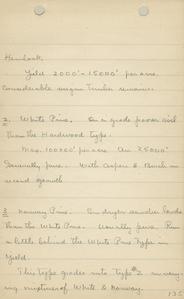 Hemlock.
Yield 2000' - 15000' per acre.
Considerable virgin timber remains.
2. White Pine. On a grade poorer soil
than the Hardwood Type.
Max. 100000' per acre. Av. 25000'
Generally pure. With Aspen & Birch in
second growth
3 Norway Pine. On dryer sandier lands
than the White Pine. Usually pure. Runs
a little behind the White Pine Type in
Yield.
This type grades into Type #2 in vary-
ing mixtures of White & Norway.
135